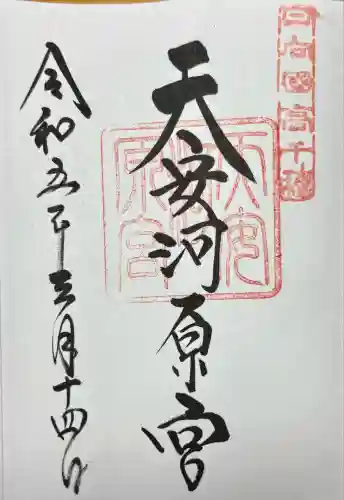 日向國高千穂
天安河原宮
天安河原宮
令和五年三月十四日